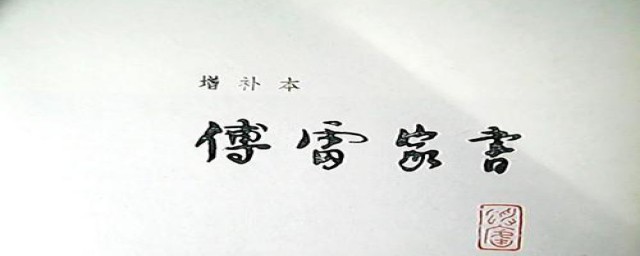 增补本
傅雷家書